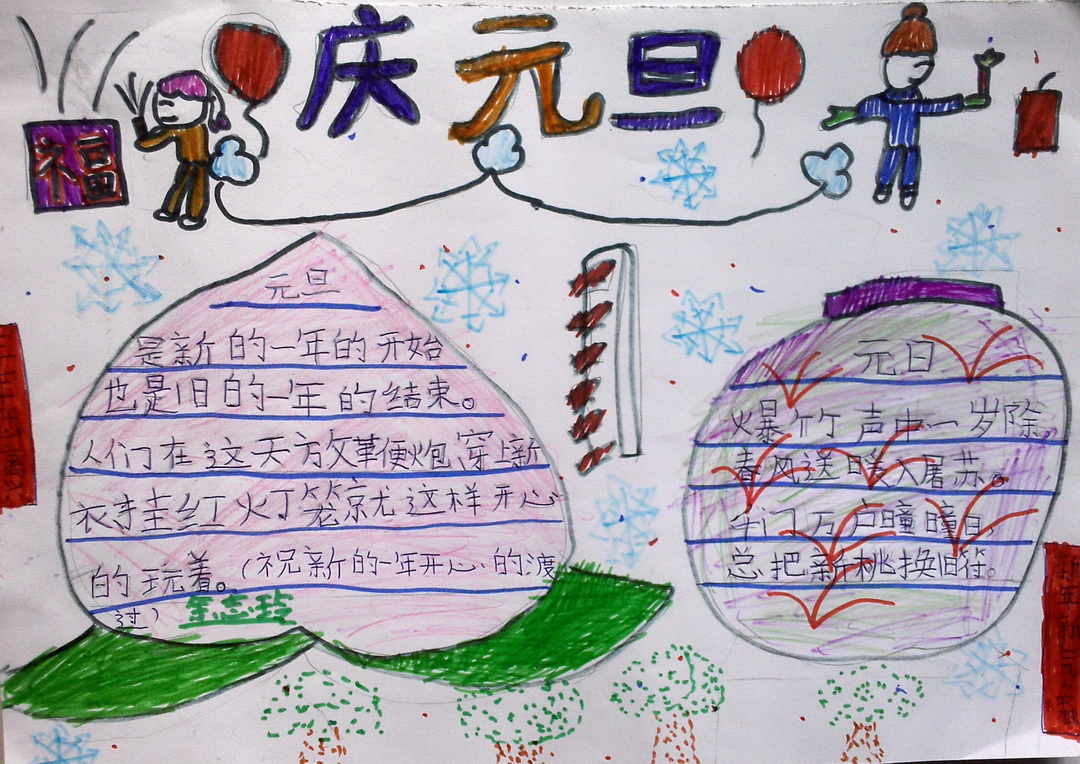 庆元旦
福
元旦
是新的一年的开始
也是旧的一年的结束。
人们在这天放鞭炮穿上新
衣挂红灯笼就这样开心
的玩着。(祝新的一年开心的渡
过)
元日
爆竹声中一岁除
春风送暖入屠苏。
千门万户曈曈日,
总把新桃换旧符。
新年